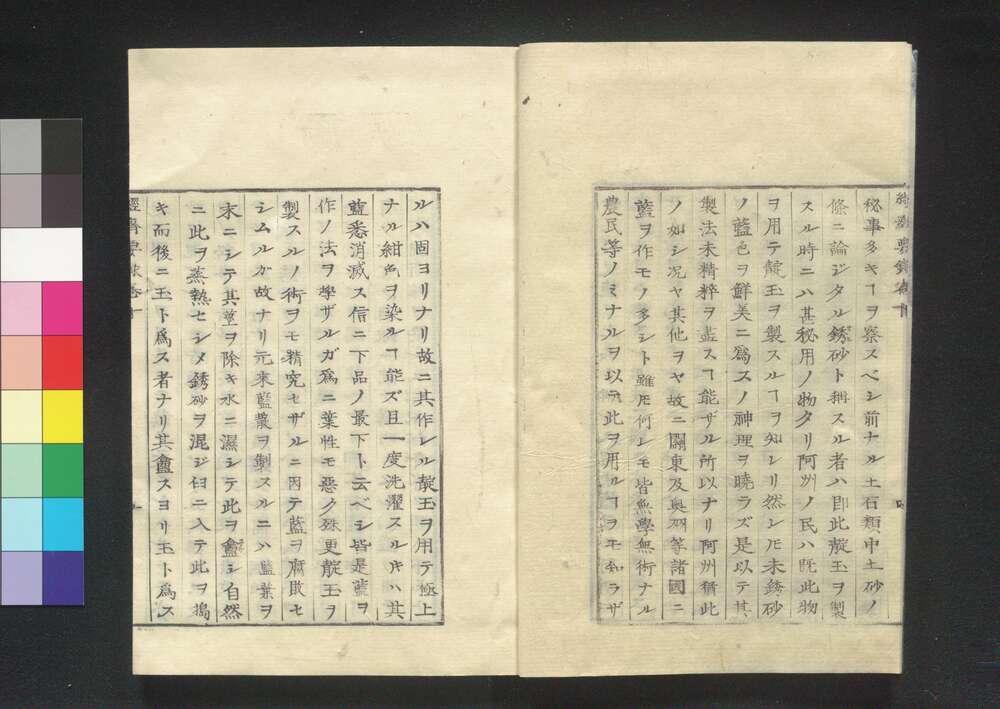 秘事多キヿヲ察スベシ前ナル土石類中土砂ノ
條ニ論ジタル銹砂ト稱スル者ハ卽此靛玉ヲ製
スル時ニハ甚秘用ノ物タリ阿州ノ民ハ既此物
ヲ用テ靛玉ヲ製スルヿヲ知レリ然レ𪜈未銹砂
ノ藍色ヲ鮮美ニ爲スノ神理ヲ曉ラズ是以テ其
製法未精粹ヲ盡スヿ能ザル所以ナリ阿州猶此
ノ如シ况ヤ其他ヲヤ故ニ關東及奥羽等諸國ニ
藍ヲ作モノ多シト雖𪜈何レモ皆無學無術ナル
農民等ノミナルヲ以テ此ヲ用ルヿヲモ知ラザ
ルハ固ヨリナリ故ニ其作レル靛玉ヲ用テ極上
ナル紺色ヲ染ルヿ能ズ且一度洗濯スルキハ其
藍悉消滅ス信ニ下品ノ最下ト云ベシ皆是藍ヲ
作ノ法ヲ學ザルガ爲ニ葉性モ惡ク殊更靛玉ヲ
製スルノ術ヲモ精究セザルニ因テ藍ヲ腐敗セ
シムルガ故ナリ元來藍靛ヲ製スルニハ藍葉ヲ
末ニシテ其莖ヲ除キ水ニ濕シテ此ヲ盦シ自然
ニ此ヲ蒸熱セシメ銹砂ヲ混ジ臼ニ入テ此ヲ搗
キ而後ニ玉ト爲ス者ナリ其盦スヨリ玉ト爲ス
經濟要錄卷十